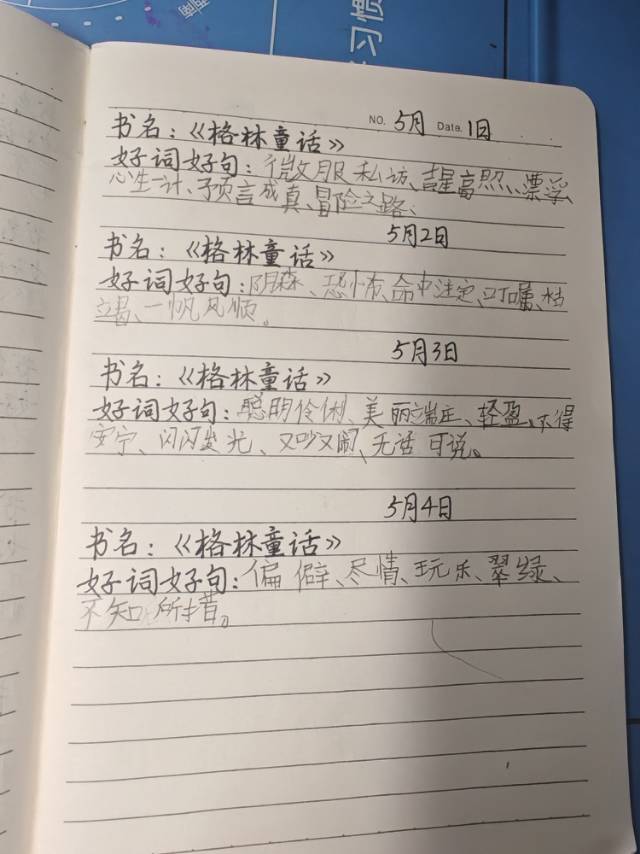 习惯
NO. 5月 Date. 1日
书名：《格林童话》
好词好句：微服私访、吉星高照、漂浮、
心生一计、预言成真、冒险之路、
5月2日
书名：《格林童话》
好词好句：阴森、恐怖、命中注定、叮嘱、枯
竭、一帆风顺。
5月3日
书名：《格林童话》
好词好句：聪明伶俐、美丽端庄、轻盈、不得
安宁、闪闪发光、又吵又闹、无话可说。
5月4日
书名：《格林童话》
好词好句：偏僻、尽情、玩乐、翠绿、
不知所措。